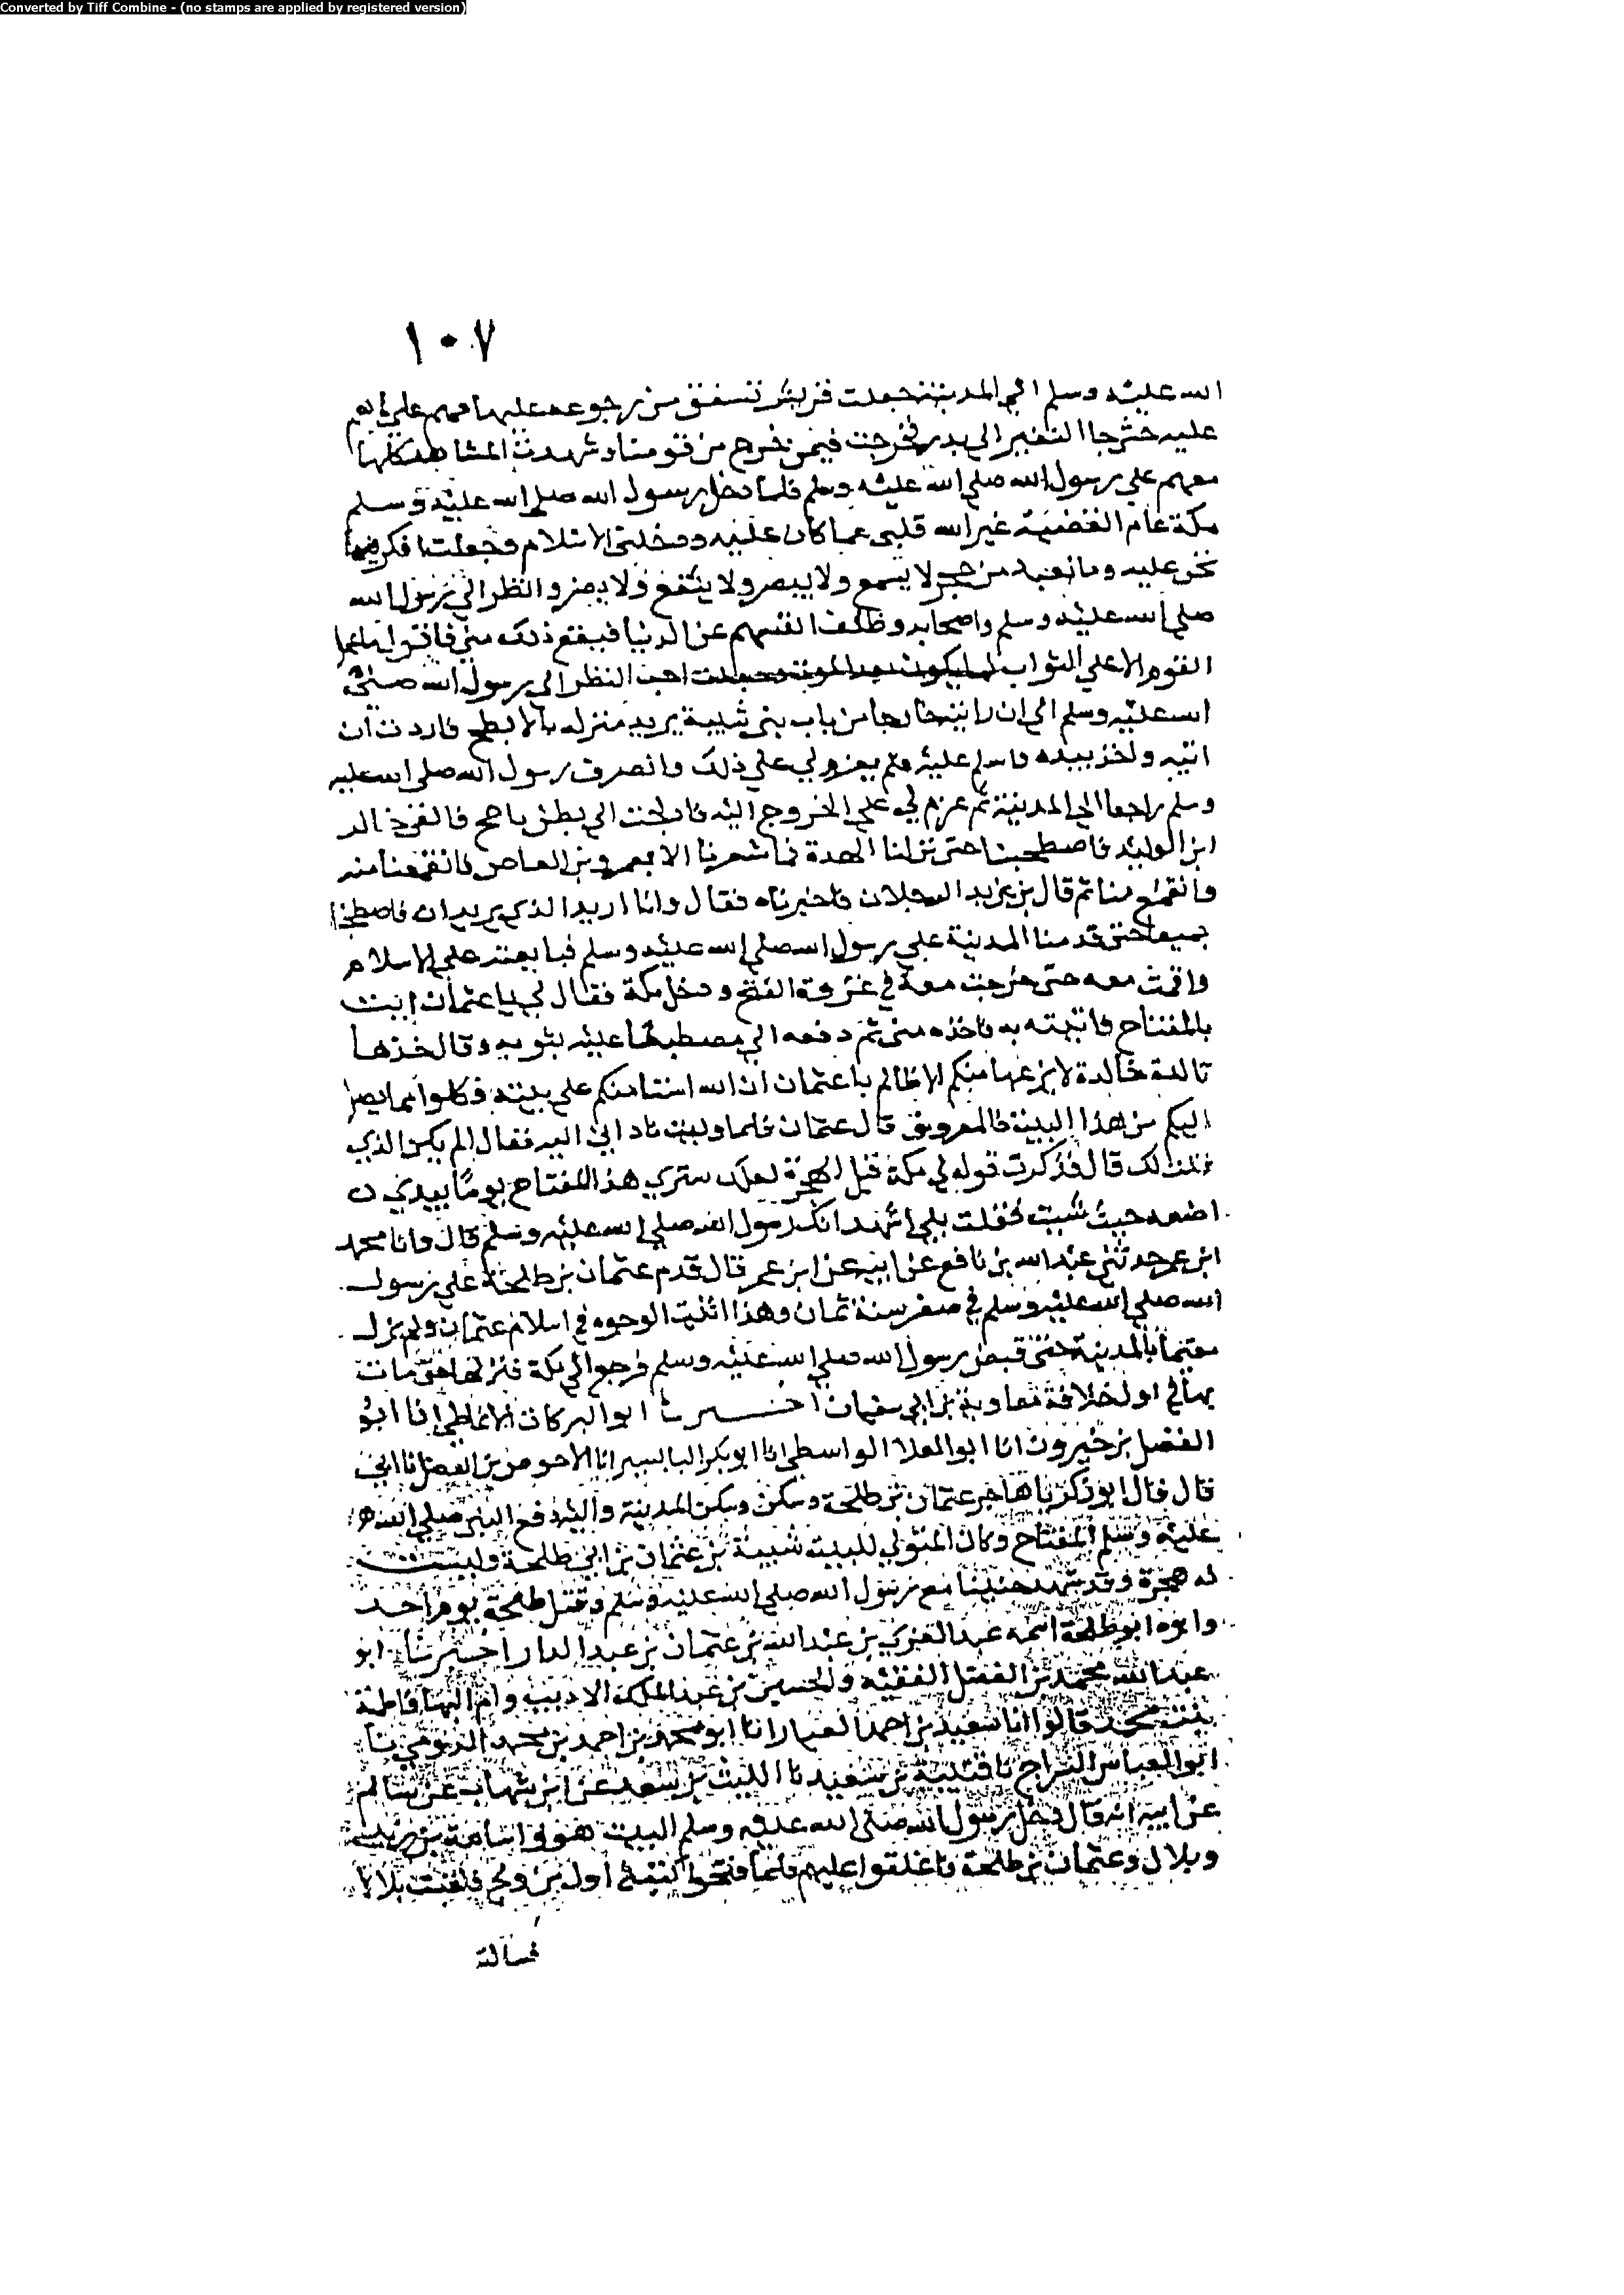 Converted by Tiff Combine - (no stamps are applied by registered version)
١٠٧
الله عليه وسلم الى المدينة جعلت قريش تشفق من رجوعه عليها فهم على ما هم
عليه حتى جا النفير الى بدر فخرجت فيمن خرج من قومنا وشهدت المشاهد كلها
معهم على رسول الله صلى الله عليه وسلم فلما دخل رسول الله صلى الله عليه وسلم
مكة عام القضية غير الله قلبى عما كان عليه ودخلنى الاسلام وجعلت افكر فيما
نحن عليه وما نعبد من حجر لا يسمع ولا يبصر ولا ينفع ولا يضر وانظر الى رسول الله
صلى الله عليه وسلم واصحابه وظلف انفسهم عن الدنيا فيقع ذلك منى فاقول ما عمل
القوم الا على الثواب لما يكون بعد الموت وجعلت احب النظر الى رسول الله صلى
الله عليه وسلم الى ان رايته خارجا من باب بنى شيبة يريد منزله بالابطح فاردت ان
اتيه واخذ بيده فاسلم عليه فلم يعزم لي على ذلك وانصرف رسول الله صلى الله عليه
وسلم راجعا الى المدينة ثم عزم لي على الخروج اليه فادلجت الى بطن ياجج فالقى خالد
ابن الوليد فاصطحبنا حتى نزلنا الهدة فما شعرنا الا بعمرو بن العاص فانقمعنا منه
وانقمع منا ثم قال بن يريد الرجلان فاخبرناه فقال وانا اريد الذي تريدان فاصطحبنا
جميعا حتى قدمنا المدينة على رسول الله صلى الله عليه وسلم فبايعته على الاسلام
واقمت معه حتى خرجت معه في غزوة الفتح ودخل مكة فقال لي يا عثمان ايت
بالمفتاح فاتيته به فاخذه منى ثم دفعه الي مضطبعا عليه بثوبه وقال خذها
تالدة خالدة لا ينزعها منكم الا ظالم يا عثمان ان الله استامنكم على بيته فكلوا مما يصل
اليكم من هذا البيت بالمعروف قال عثمان فلما وليت نادانى اليه فقال الم يكن الذي
قلت لك قال فذكرت قوله لي بمكة قبل الهجرة لعلك سترى هذا المفتاح يوما بيدي
اضعه حيث شيت فقلت بلى اشهد انك رسول الله صلى الله عليه وسلم قال وانا محمد
ابن عمر حدثني عبد الله بن نافع عن ابيه عن ابن عمر قال قدم عثمان بن طلحة على رسول
الله صلى الله عليه وسلم في صفر سنة ثمان وهذا اثبت الوجوه في اسلام عثمان ولم يزل
مقيما بالمدينة حتى قبض رسول الله صلى الله عليه وسلم فرجع الى مكة فنزلها حتى مات
بها في اول خلافة معاوية بن ابي سفيان اخبرنا ابو البركات الانماطي انا ابو
الفضل بن خيرون انا ابو العلا الواسطي انا ابو بكر البابسيري انا الاحوص بن الفضل نا ابي
قال قال ابو زكريا هاجر عثمان بن طلحة وسكن وسكن المدينة واليه دفع النبي صلى الله
عليه وسلم المفتاح وكان المتولي للبيت شيبة بن عثمان بن ابي طلحة وليست
له هجرة وقد شهد حنينا مع رسول الله صلى الله عليه وسلم وقتل طلحة يوم احد
وابوه ابو طلحة اسمه عبد العزي بن عبد الله بن عثمان بن عبد الدار اخبرنا ابو
عبد الله محمد بن الفضل الفقيه والحسين بن عبد الملك الاديب وام البها فاطمة
بنت محمد قالوا انا سعيد بن احمد العيار انا ابو محمد بن احمد بن محمد الرومي نا
ابو العباس السراج نا قتيبة بن سعيد نا الليث بن سعد عن ابن شهاب عن سالم
عن ابيه انه قال دخل رسول الله صلى الله عليه وسلم البيت هو واسامة بن زيد
وبلال وعثمان بن طلحة فاغلقوا عليهم فلما فتحوا كنت اول من ولج فلقيت بلالا
فسالته